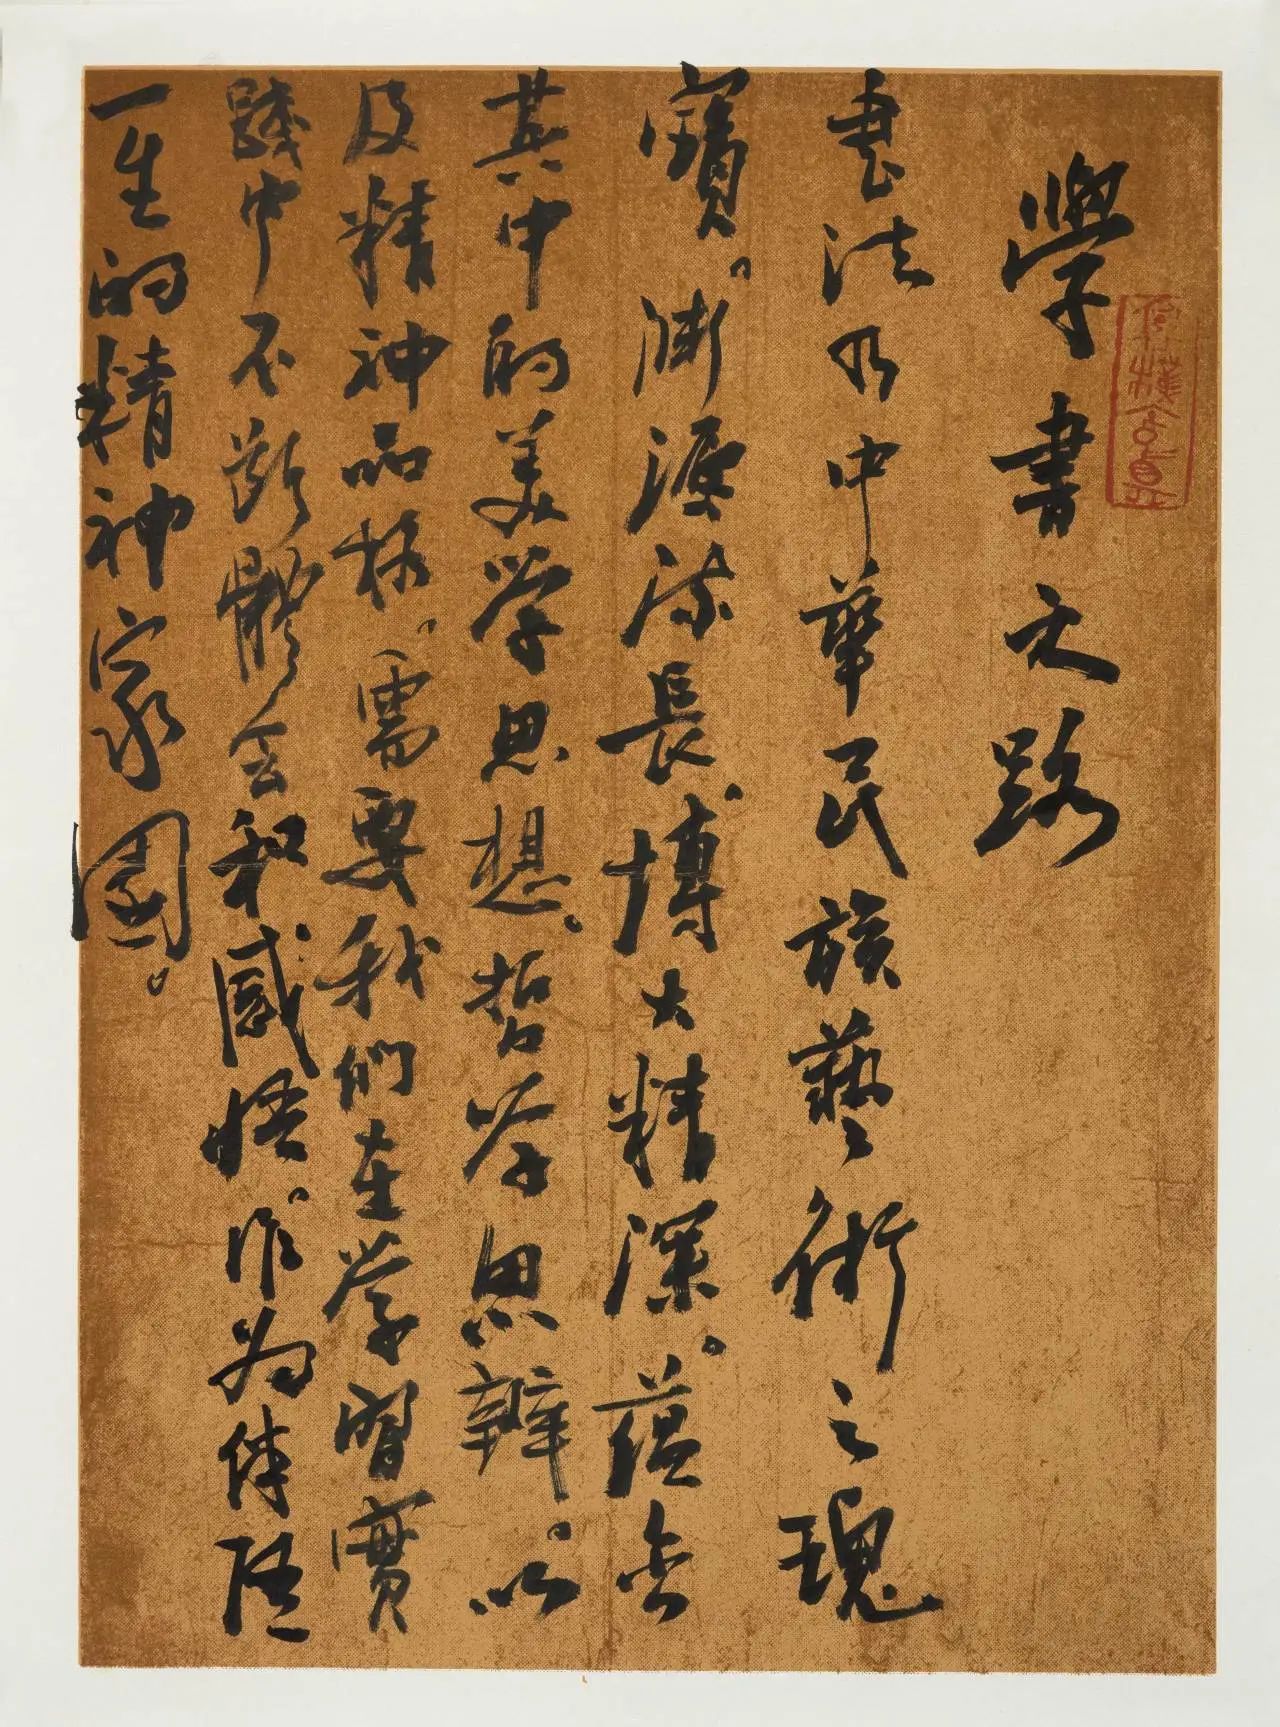 學書之路
書法乃中華民族藝術之瑰
寶。淵源流長，博大精深。蘊含
其中的美学思想、哲学思辨。以
及精神品格，需要我們在学習實
踐中不斷體会和感悟。作为伴随
一生的精神家園。